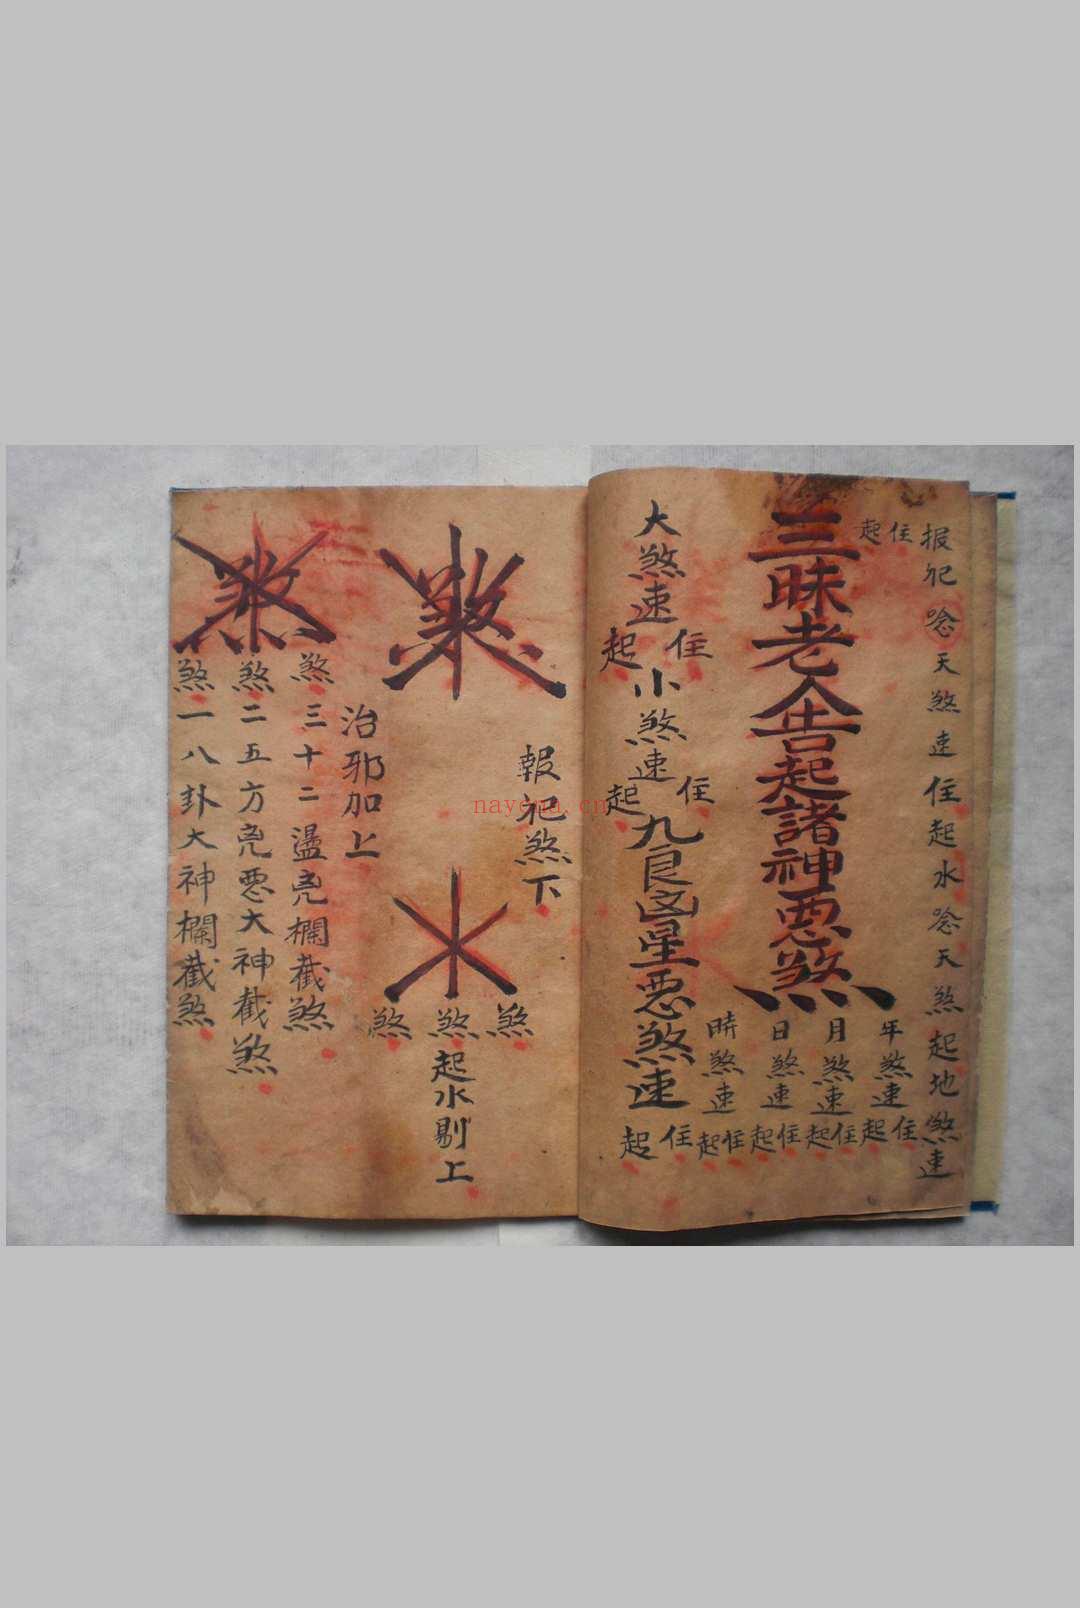 报犯念天煞速住起水念天煞起地煞速
住起
三昧老人告起諸神悪煞
年煞速住起
月煞速住起
日煞速住起
時煞速住起
大煞速住起小煞速住起九良星悪煞速住起
報犯煞下
煞
煞煞煞
起水剔上
治邪加上
煞
煞三十二盪兇欄截煞
煞二五方兇悪大神截煞
煞一八卦大神欄截煞
nayona.cn